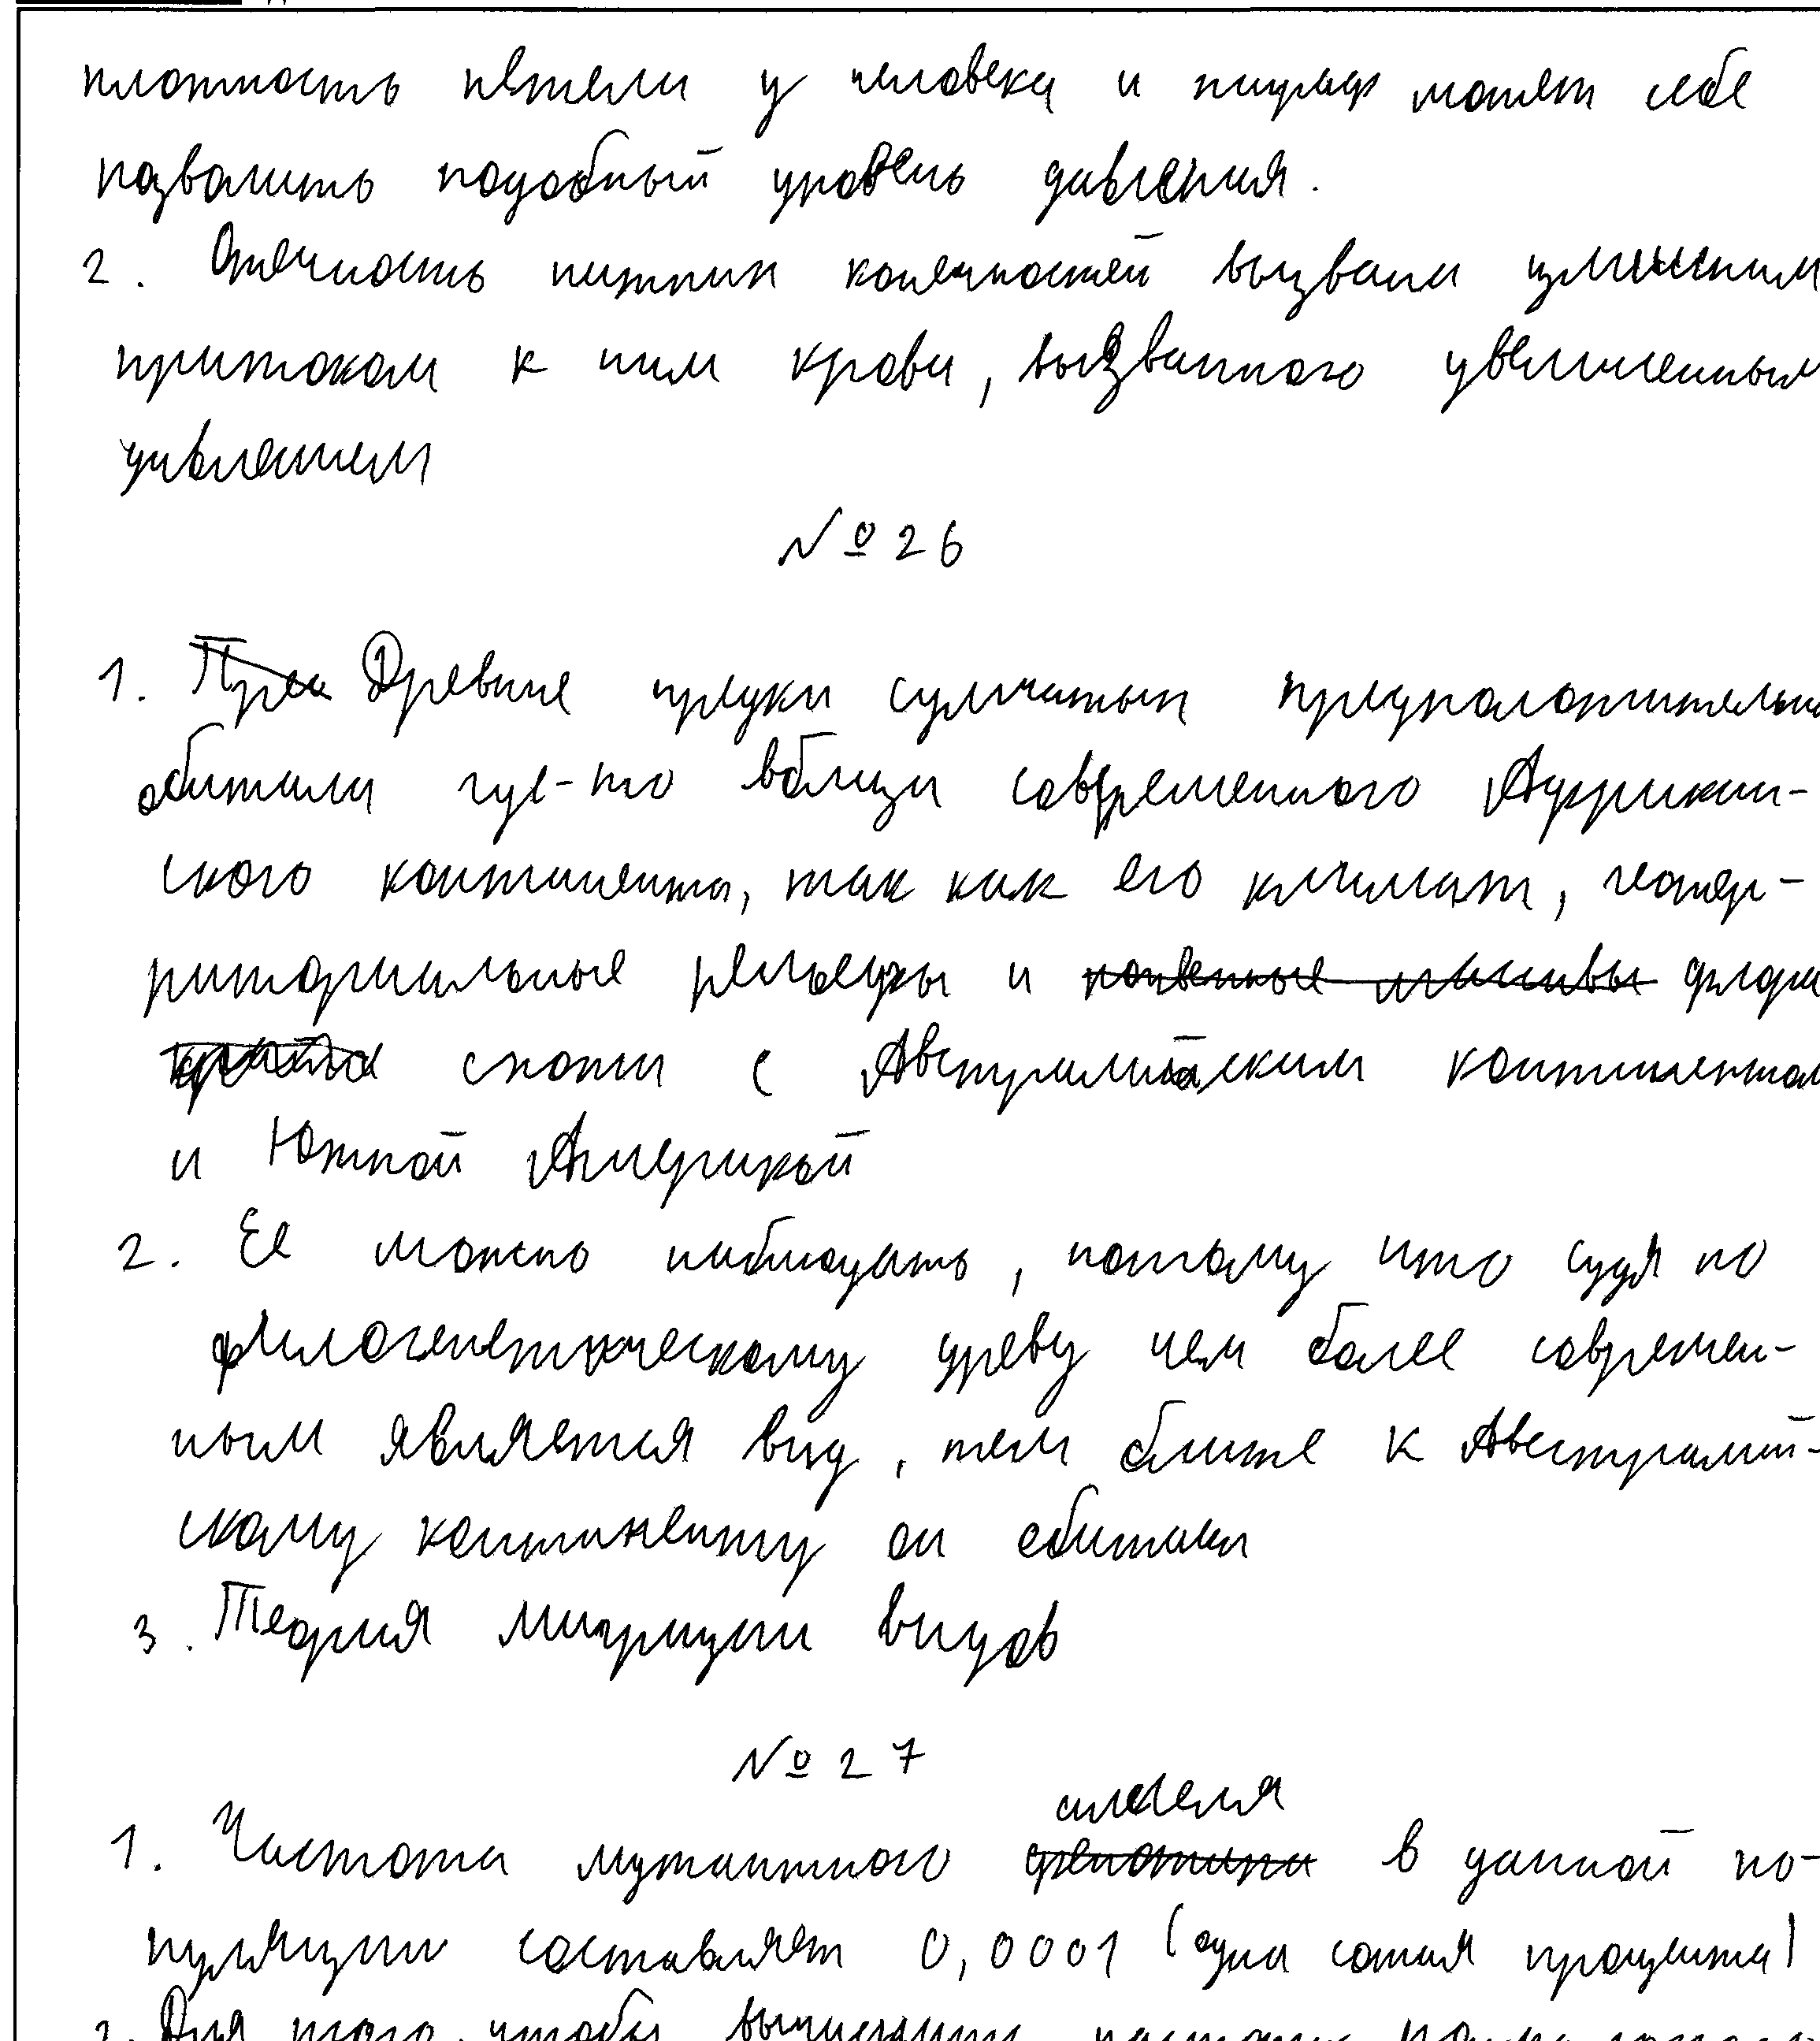 плотность петели у человека и жираф может себе
позволить подобный уровень давления.
2. Отечность нижних конечностей вызвана излишним
притоком к ним крови, вызванного увеличенным
давлением
№ 26
1. Древние предки сумчатых предположительно
обитали где-то вблизи современного Африкан-
ского континента, так как его климат,
риториальные рельефы и флора
схожи с Австралийским континентом
и Южной Америкой
2. Её можно наблюдать, потому что судя по
филогенетическому древу чем более современ-
ным является вид, тем ближе к Австралий-
скому континенту он обитает
3. Теория миграции видов
№ 27
аллеля
1. Частота мутантного фенотипа в данной по-
пуляции составляет 0,0001 (одна сотая процента)
2. Для того, чтобы вычислить